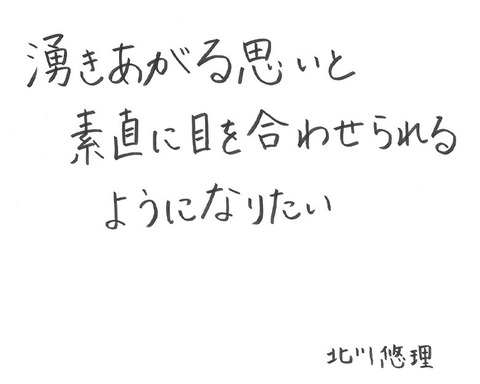 湧きあがる思いと
素直に目を合わせられる
ようになりたい
北川悠理